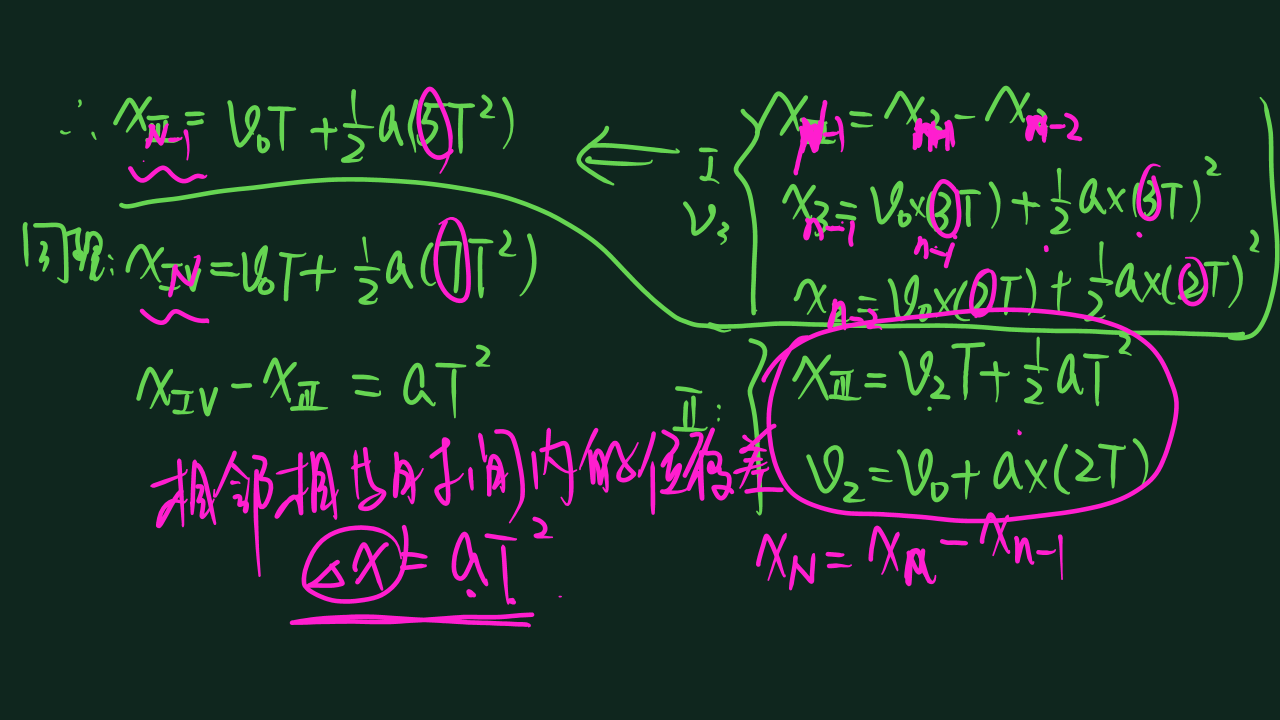 ∴ x_{N-1} = v₀T + ½a(5T²)
同理: x_N = v₀T + ½a(7T²)
x_{IV} - x_{III} = aT²
相邻相等时间内的位移差
Δx = aT²
I
v₃
x_{N-1} = x_{n-1} - x_{n-2}
x_{n-1} = v₀×(3T) + ½a×(3T)²
n-1
x_{n-2} = v₀×(2T) + ½a×(2T)²
II:
x_{III} = v₂T + ½aT²
v₂ = v₀ + a×(2T)
x_N = x_n - x_{n-1}